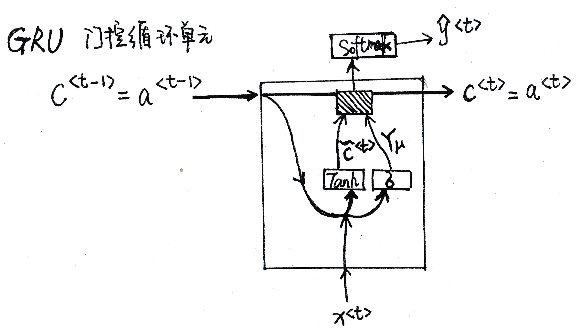 GRU 门控循环单元
Softmax
ŷ<t>
C<t-1> = a<t-1>
c<t> = a<t>
c̃<t>
γμ
Tanh
6
x<t>